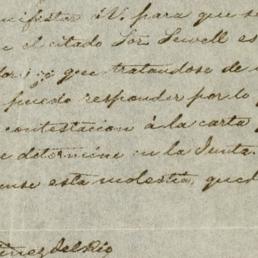 manifesta á V. para que s
e el citado Sor Sewell es
que tratandose de
puedo responder por lo
contestacion á la carta
e determine en la Junta.
ense esta molestia, qued
tinez del Rio